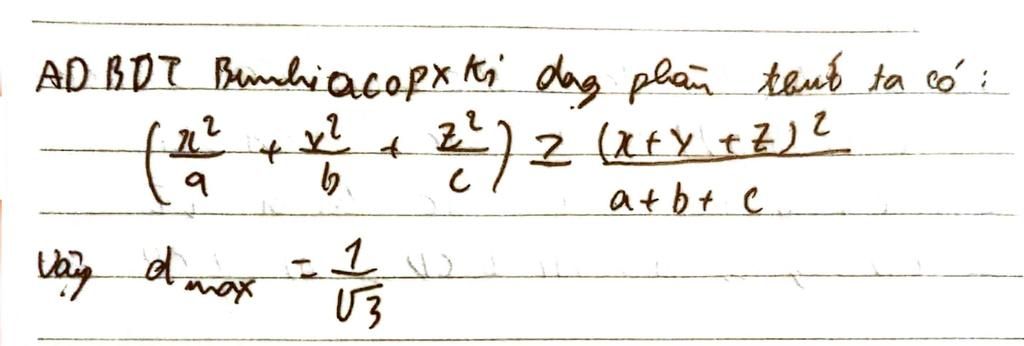 AD BDT Bunhiacopxki dạng phân thức ta có:
(x²/a + y²/b + z²/c) ≥ (x+y+z)²/(a+b+c)
Vậy d max = 1/√3